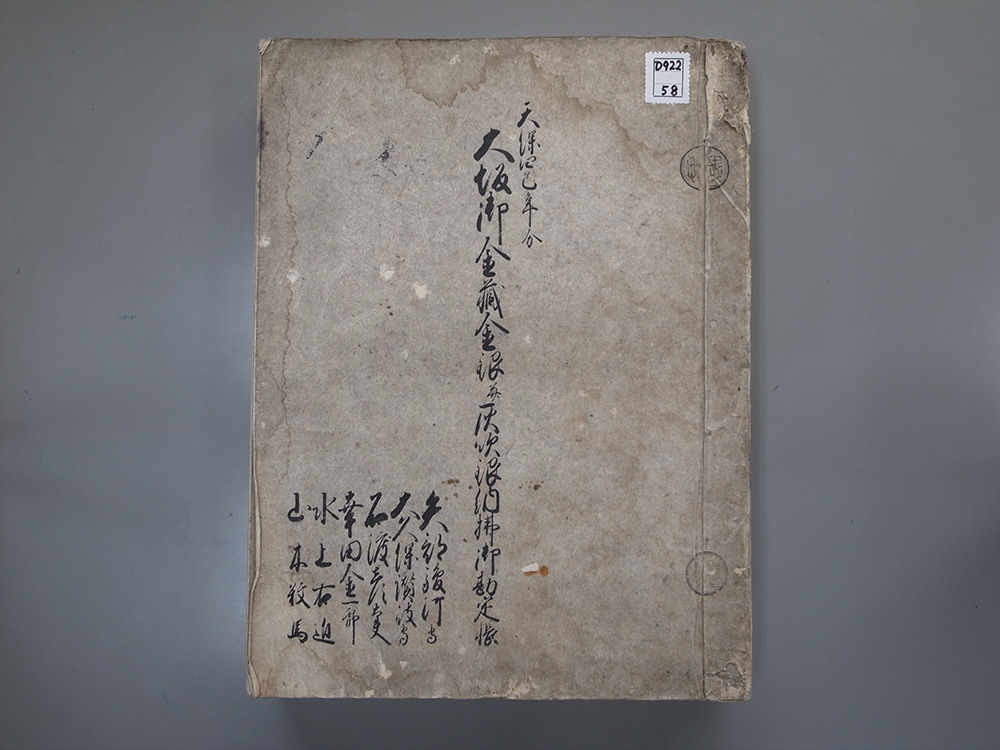 天保四巳年分
大坂御金蔵金銀并灰吹銀納拂御勘定帳
矢部駿河守
大久保讃岐守
石渡彦太夫
幸田金一郎
水上右近
山本数馬
D922
58